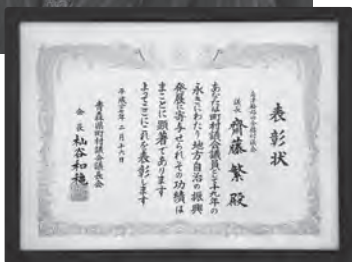 表彰状
議長 齊藤繁殿
あなたは町村議会議員として十九年の
永きにわたり地方自治の振興
発展に寄与せられその功績は
まことに顕著であります
よってここにこれを表彰します
平成 年二月十六日
青森県町村議会議長会
会長 杣谷和穂